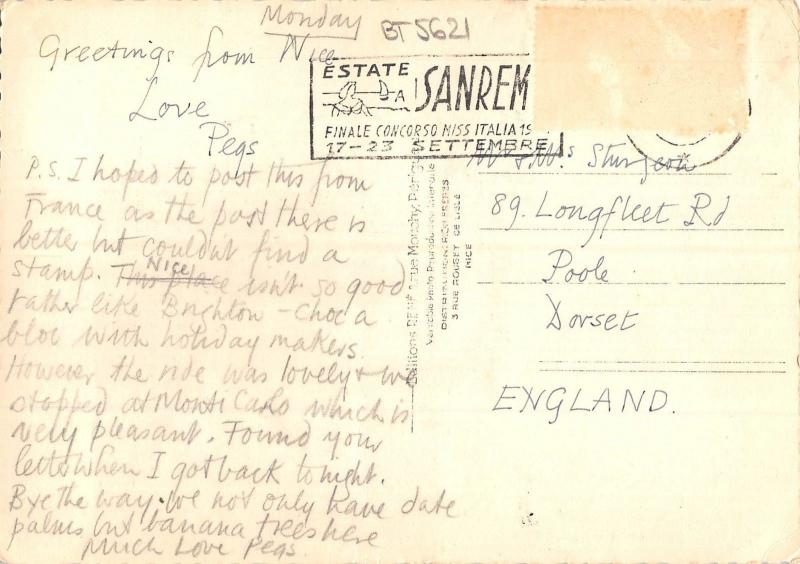 Monday
BT 5621
Greetings from Nice
Love
Pegs
P.S. I hoped to post this from
France as the post there is
better but couldn't find a
stamp. This place Nice isn't so good
rather like Brighton - choc a
bloc with holiday makers.
However the ride was lovely & we
stopped at Monti Carlo which is
very pleasant. Found your
letter when I got back tonight.
Bye the way we not only have date
palms but banana trees here
Much Love Pegs.
ESTATE
A SANREM
FINALE CONCORSO MISS ITALIA 19
17-23 SETTEMBRE
Editions RENÉ
Véritable Photo
DISTRIBUTION FRÈRES
3 RUE ROUGET DE LISLE
NICE
Mr & Mrs Sturgeon
89. Longfleet Rd
Poole
Dorset
ENGLAND.